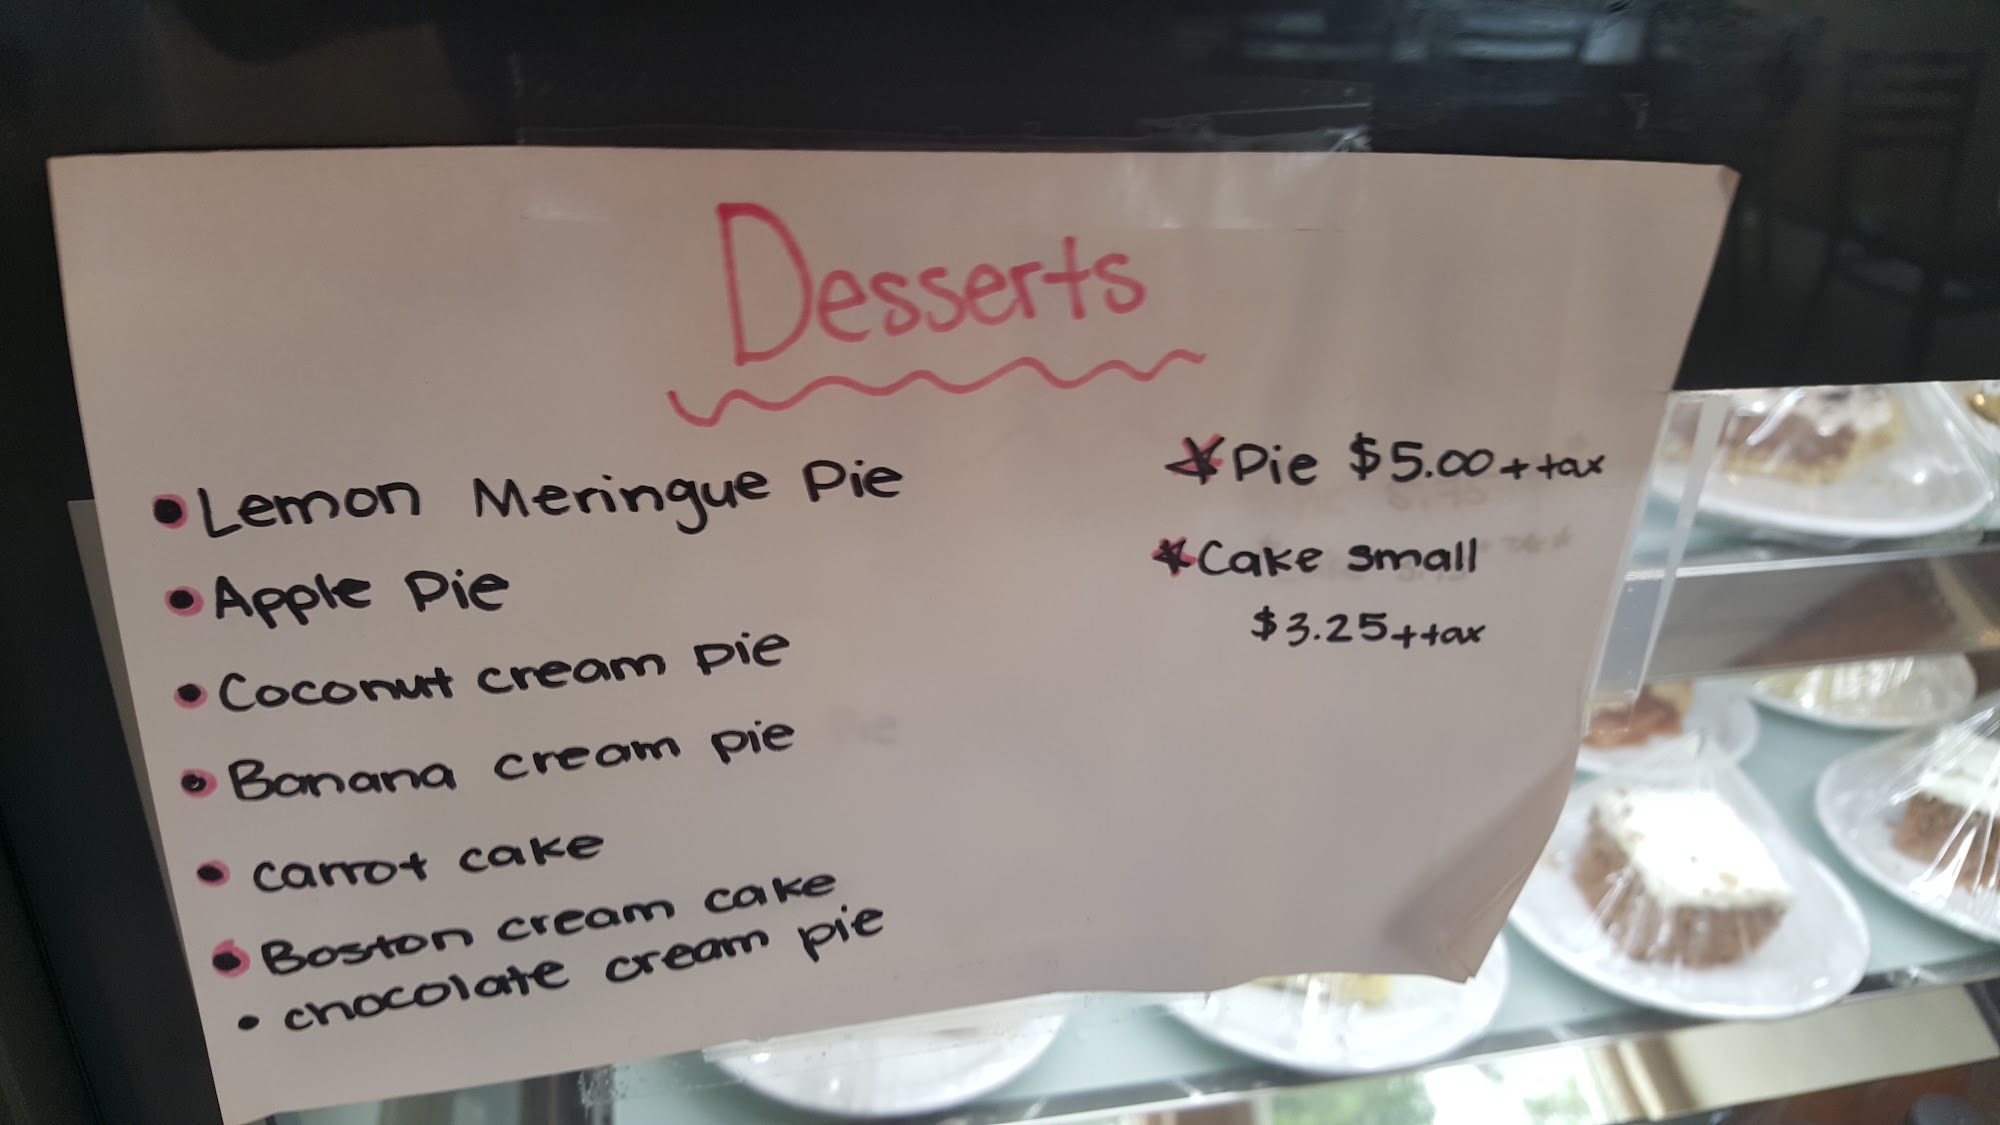 Desserts
• Lemon Meringue Pie
• Apple Pie
• Coconut cream pie
• Banana cream pie
• carrot cake
• Boston cream cake
• chocolate cream pie
* Pie $5.00 + tax
* Cake small
$3.25 + tax